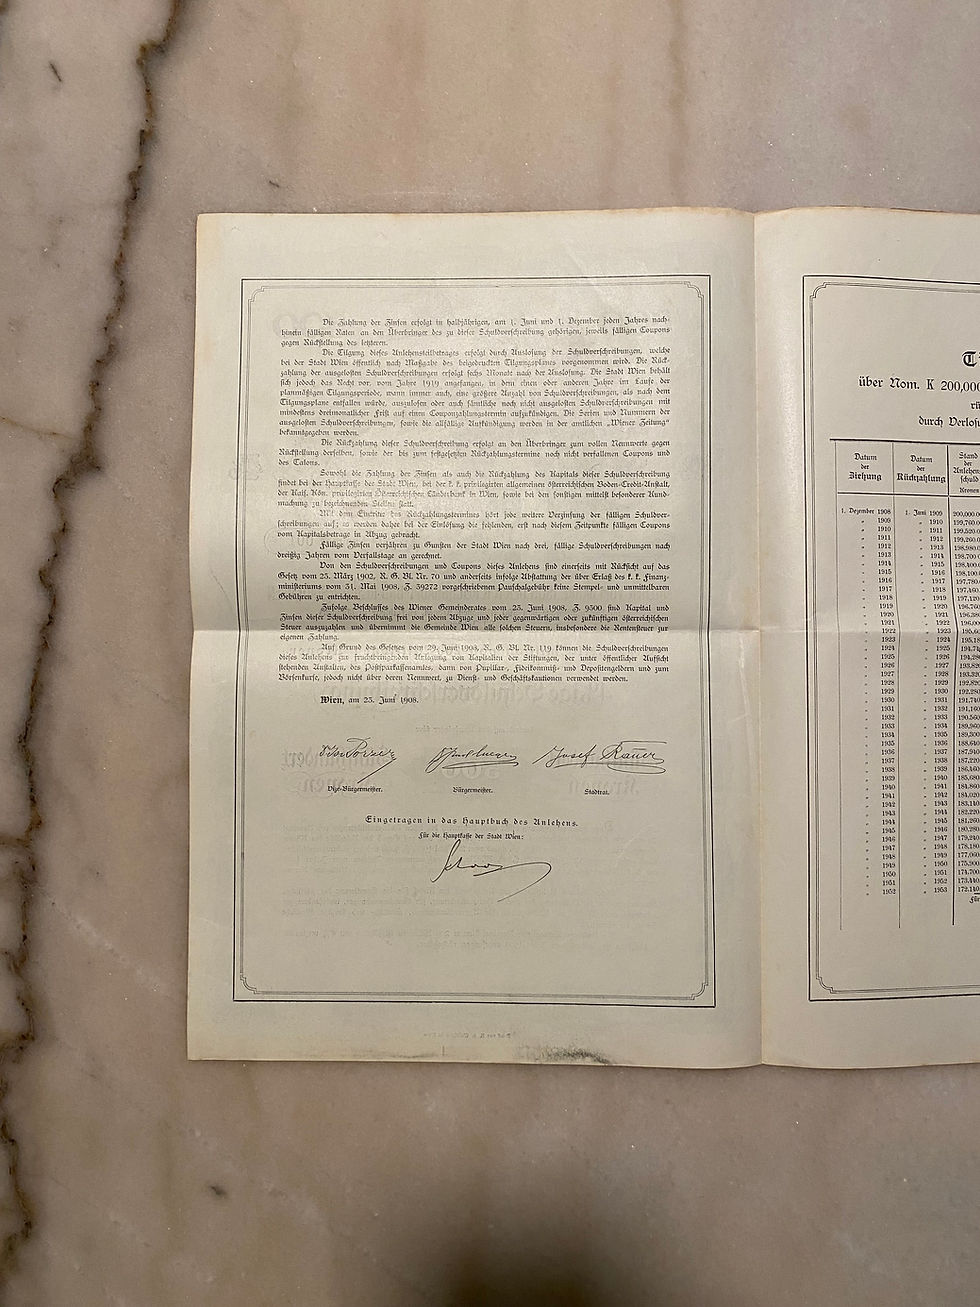 Die Zahlung der Zinsen erfolgt in halbjährigen, am 1. Juni und 1. Dezember jeden Jahres nach-
hinein fälligen Raten an den Überbringer des zu dieser Schuldverschreibung gehörigen, jeweils fälligen Coupons
gegen Rückstellung des letzteren.
Die Tilgung dieses Anlehensteilbetrages erfolgt durch Auslosung der Schuldverschreibungen, welche
bei der Stadt Wien öffentlich nach Maßgabe des beigedruckten Tilgungsplanes vorgenommen wird. Die Rück-
zahlung der ausgelosten Schuldverschreibungen erfolgt sechs Monate nach der Auslosung. Die Stadt Wien behält
sich jedoch das Recht vor, vom Jahre 1919 angefangen, in dem einen oder anderen Jahre im Laufe der
planmäßigen Tilgungsperiode, wann immer auch, eine größere Anzahl von Schuldverschreibungen, als nach dem
Tilgungsplane entfallen würde, auszulosen oder auch sämtliche noch nicht ausgelosten Schuldverschreibungen mit
mindestens dreimonatlicher Frist auf einen Couponzahlungstermin aufzukündigen. Die Serien und Nummern der
ausgelosten Schuldverschreibungen, sowie die allfällige Aufkündigung werden in der amtlichen „Wiener Zeitung“
bekanntgegeben werden.
Die Rückzahlung dieser Schuldverschreibung erfolgt an den Überbringer zum vollen Nennwerte gegen
Rückstellung derselben, sowie der bis zum festgesetzten Rückzahlungstermine noch nicht verfallenen Coupons und
des Talons.
Sowohl die Zahlung der Zinsen als auch die Rückzahlung des Kapitals dieser Schuldverschreibung
findet bei der Hauptkasse der Stadt Wien, bei der k. k. privilegirten allgemeinen österreichischen Boden-Credit-Anstalt,
der Kais. Kön. privilegirten Österreichischen Länderbank in Wien, sowie bei den sonstigen mittelst besonderer Kund-
machung zu bezeichnenden Stellen statt.
Mit dem Eintritte des Rückzahlungstermines hört jede weitere Verzinsung der fälligen Schuldver-
schreibungen auf; es werden daher bei der Einlösung die fehlenden, erst nach diesem Zeitpunkte fälligen Coupons
vom Kapitalsbetrage in Abzug gebracht.
Fällige Zinsen verjähren zu Gunsten der Stadt Wien nach drei, fällige Schuldverschreibungen nach
dreißig Jahren vom Verfallstage an gerechnet.
Von den Schuldverschreibungen und Coupons dieses Anlehens sind einerseits mit Rücksicht auf das
Gesetz vom 25. März 1902, R. G. Bl. Nr. 70 und anderseits infolge Abstattung der über Erlaß des k. k. Finanz-
ministeriums vom 31. Mai 1908, Z. 39272 vorgeschriebenen Pauschalgebühr keine Stempel- und unmittelbaren
Gebühren zu entrichten.
Zufolge Beschlusses des Wiener Gemeinderates vom 23. Juni 1908, Z. 9500 sind Kapital und
Zinsen dieser Schuldverschreibung frei von jedem Abzuge und jeder gegenwärtigen oder zukünftigen österreichischen
Steuer auszuzahlen und übernimmt die Gemeinde Wien alle solchen Steuern, insbesondere die Rentensteuer zur
eigenen Zahlung.
Auf Grund des Gesetzes vom 29. Juni 1908, R. G. Bl. Nr. 119 können die Schuldverschreibungen
dieses Anlehens zur fruchtbringenden Anlegung von Kapitalien der Stiftungen, der unter öffentlicher Aufsicht
stehenden Anstalten, des Postsparkassenamtes, dann von Pupillar-, Fideikommiß- und Depositengeldern und zum
Börsenkurse, jedoch nicht über deren Nennwert, zu Dienst- und Geschäftskautionen verwendet werden.
Wien, am 25. Juni 1908.
Josef Rauer
Vize-Bürgermeister. Bürgermeister. Stadtrat.
Eingetragen in das Hauptbuch des Anlehens.
Für die Hauptkasse der Stadt Wien:
über Nom. K 200,000
durch Verlos
Datum der Ziehung
Datum der Rückzahlung
Stand der Anlehens schuld
Kronen
1. Dezember 1908 1. Juni 1909 200,000.0
„ 1909 „ 1910 199,760.0
„ 1910 „ 1911 199,520.0
„ 1911 „ 1912 199,260.0
„ 1912 „ 1913 198,980.0
„ 1913 „ 1914 198,700.0
„ 1914 „ 1915 198,400.0
„ 1915 „ 1916 198,100.0
„ 1916 „ 1917 197,780.
„ 1917 „ 1918 197,460.
„ 1918 „ 1919 197,120
„ 1919 „ 1920 196,760
„ 1920 „ 1921 196,380
„ 1921 „ 1922 196,00
„ 1922 „ 1923 195,60
„ 1923 „ 1924 195,18
„ 1924 „ 1925 194,74
„ 1925 „ 1926 194,280
„ 1926 „ 1927 193,820
„ 1927 „ 1928 193,320
„ 1928 „ 1929 192,820
„ 1929 „ 1930 192,280
„ 1930 „ 1931 191,740
„ 1931 „ 1932 191,160
„ 1932 „ 1933 190,560
„ 1933 „ 1934 189,960
„ 1934 „ 1935 189,300
„ 1935 „ 1936 188,640
„ 1936 „ 1937 187,940
„ 1937 „ 1938 187,220
„ 1938 „ 1939 186,460
„ 1939 „ 1940 185,680
„ 1940 „ 1941 184,860
„ 1941 „ 1942 184,020
„ 1942 „ 1943 183,140
„ 1943 „ 1944 182,220
„ 1944 „ 1945 181,260
„ 1945 „ 1946 180,280
„ 1946 „ 1947 179,240
„ 1947 „ 1948 178,180
„ 1948 „ 1949 177,060
„ 1949 „ 1950 175,900
„ 1950 „ 1951 174,700
„ 1951 „ 1952 173,440
„ 1952 „ 1953 172,140
Für